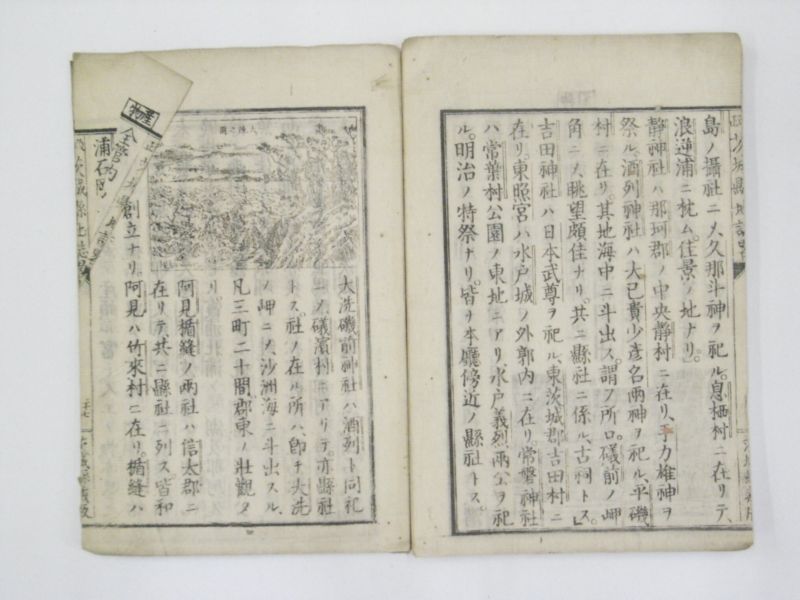 島ノ攝社ニ〆久那斗神ヲ祀ル。息栖村ニ在リテ、
浪逆浦ニ枕ム。佳景ノ地ナリ。
靜神社ハ那珂郡ノ中央靜村ニ在リ、手力雄神ヲ
祭ル、酒列神社ハ大己貴少彦名兩神ヲ祀ル、平磯
村ニ在リ、其地海中ニ斗出ス。謂フ所ロ磯前ノ岬
角ニ〆眺望頗佳ナリ。共ニ縣社ニ係ル、古祠トス。
吉田神社ハ日本武尊ヲ祀ル、東茨城郡吉田村ニ
在リ。東照宮ハ水戸城ノ外郭内ニ在リ。常磐神社
ハ常葉村公園ノ東地ニアリ、水戸義烈兩公ヲ祀
ル。明治ノ特祭ナリ。皆ナ本廳傍近ノ縣社トス。
大洗之圖
大洗磯前神社ハ酒列ト同祀
ニ〆、磯濱村ニアリテ亦縣社
トス。社ノ在ル所ハ卽チ大洗
ノ岬ニ〆、沙洲海ニ斗出スル、
凡三町二十間郡東ノ壯觀タ
阿見楯縫ノ兩社ハ信太郡ニ
在リテ共ニ縣社ニ列ス皆和
創立ナリ。阿見ハ竹來村ニ在リ。楯縫ハ
物産